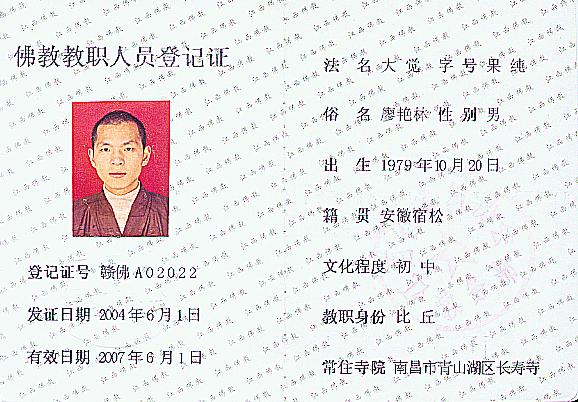 佛教教职人员登记证
登记证号 赣佛A02022
发证日期 2004年6月1日
有效日期 2007年6月1日
法 名 大 觉 字 号 果 纯
俗 名 廖艳林 性 别 男
出 生 1979年10月20日
籍 贯 安徽宿松
文化程度 初 中
教职身份 比 丘
常住寺院 南昌市青山湖区长寿寺